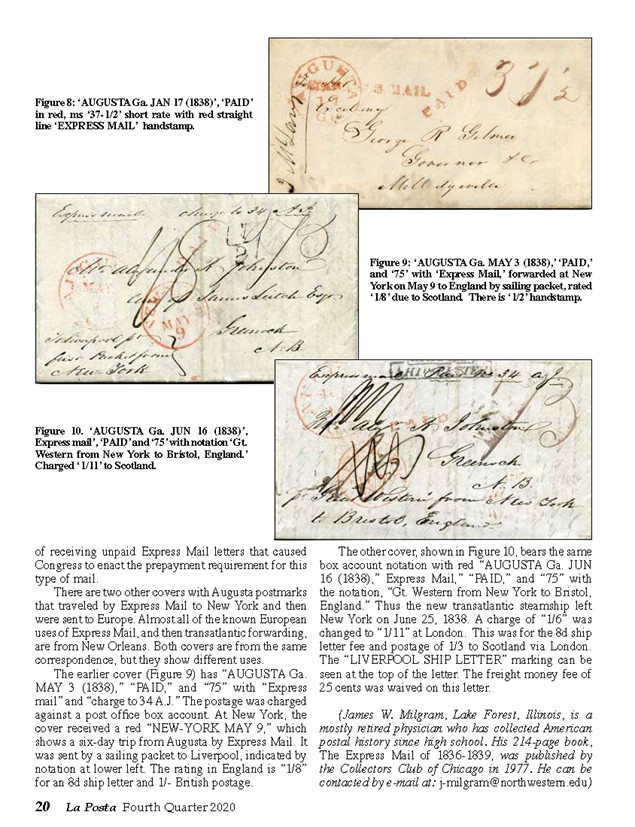 Figure 8: ‘AUGUSTA Ga. JAN 17 (1838)’, ‘PAID’
in red, ms ‘37-1/2’ short rate with red straight
line ‘EXPRESS MAIL’ handstamp.
AUGUSTA
MAIL
PAID
37½
George R Gilmer
Governor &c
Milledgeville
Express mail. charge to 34 A.J.
Figure 9: ‘AUGUSTA Ga. MAY 3 (1838),’ ‘PAID,’
and ‘75’ with ‘Express Mail,’ forwarded at New
York on May 9 to England by sailing packet, rated
‘1/8’ due to Scotland. There is ‘1/2’ handstamp.
Mr. Alexander Johnston
Greenock
N.B.
MAY
9
New York
Figure 10. ‘AUGUSTA Ga. JUN 16 (1838)’,
Express mail’, ‘PAID’ and ‘75’ with notation ‘Gt.
Western from New York to Bristol, England.’
Charged ‘1/11’ to Scotland.
Express mail
34 A.J.
PAID
Johnston
Greenock
N.B.
Great Western from New York
to Bristol, England
of receiving unpaid Express Mail letters that caused
Congress to enact the prepayment requirement for this
type of mail.
There are two other covers with Augusta postmarks
that traveled by Express Mail to New York and then
were sent to Europe. Almost all of the known European
uses of Express Mail, and then transatlantic forwarding,
are from New Orleans. Both covers are from the same
correspondence, but they show different uses.
The earlier cover (Figure 9) has “AUGUSTA Ga.
MAY 3 (1838),” “PAID,” and “75” with “Express
mail” and “charge to 34 A.J.” The postage was charged
against a post office box account. At New York, the
cover received a red “NEW-YORK MAY 9,” which
shows a six-day trip from Augusta by Express Mail. It
was sent by a sailing packet to Liverpool, indicated by
notation at lower left. The rating in England is “1/8”
for an 8d ship letter and 1/- British postage.
The other cover, shown in Figure 10, bears the same
box account notation with red “AUGUSTA Ga. JUN
16 (1838),” Express Mail,” “PAID,” and “75” with
the notation, “Gt. Western from New York to Bristol,
England.” Thus the new transatlantic steamship left
New York on June 25, 1838. A charge of “1/6” was
changed to “1/11” at London. This was for the 8d ship
letter fee and postage of 1/3 to Scotland via London.
The “LIVERPOOL SHIP LETTER” marking can be
seen at the top of the letter. The freight money fee of
25 cents was waived on this letter.
(James W. Milgram, Lake Forest, Illinois, is a
mostly retired physician who has collected American
postal history since high school. His 214-page book,
The Express Mail of 1836-1839, was published by
the Collectors Club of Chicago in 1977. He can be
contacted by e-mail at: j-milgram@northwestern.edu)
20 La Posta Fourth Quarter 2020